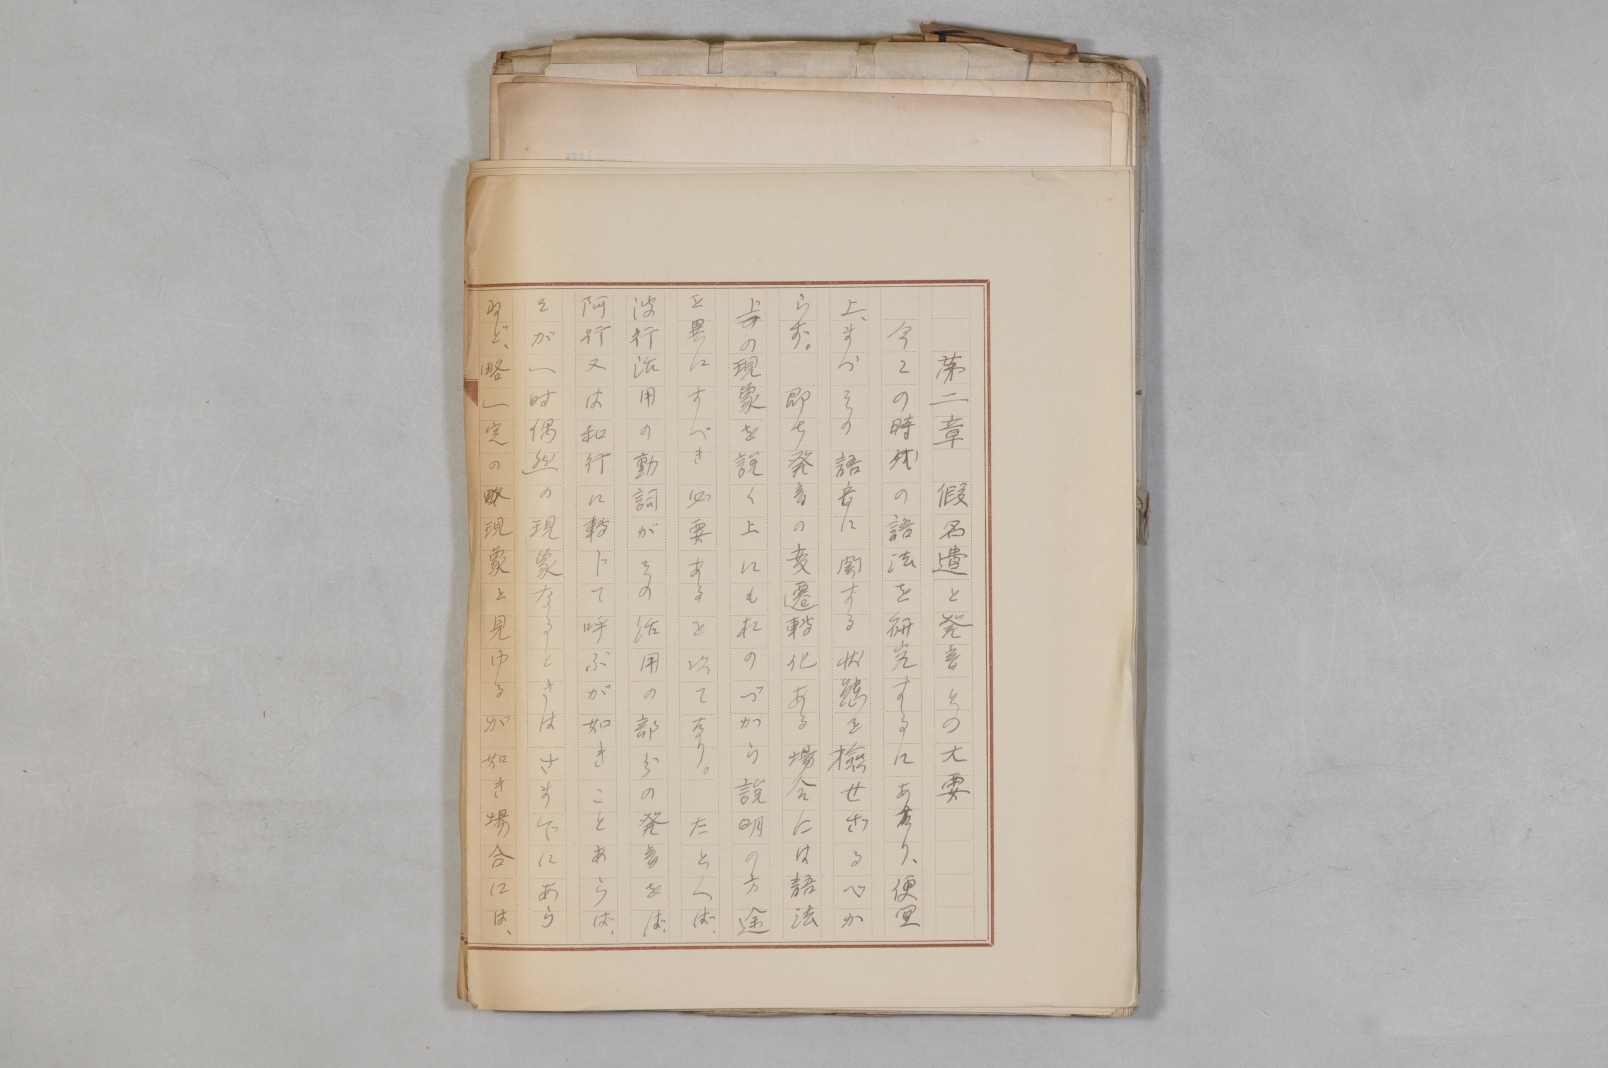 第二章　假名遣と発音との大要
今この時代の語法を研究するにあたり、便宜
上、まづその語音に関する状態を検せざるべか
らず。即ち発音の変遷転化ある場合には語法
上の現象を説く上にもおのづから説明の方途
を異にすべき必要あるを以てなり。たとへば、
波行活用の動詞がその活用の部分の発音をば、
阿行又は和行に転じて呼ぶが如きことあらば、
そが一時偶然の現象なるときはさまでにあら
ねど、略一定の現象と見ゆるが如き場合には、